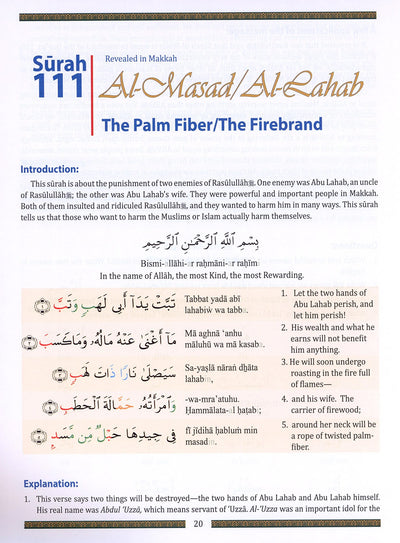 Sūrah
111
Revealed in Makkah
Al-Masad/Al-Lahab
The Palm Fiber/The Firebrand
Introduction:
This sūrah is about the punishment of two enemies of Rasūlullāhﷺ. One enemy was Abu Lahab, an uncle
of Rasūlullāhﷺ; the other was Abu Lahab's wife. They were powerful and important people in Makkah.
Both of them insulted and ridiculed Rasūlullāhﷺ, and they wanted to harm him in many ways. This sūrah
tells us that those who want to harm the Muslims or Islam actually harm themselves.
بِسْمِ ٱللَّهِ ٱلرَّحْمَٰنِ ٱلرَّحِيمِ
Bismi-llāhi-r raḥmāni-r raḥīm
In the name of Allāh, the most Kind, the most Rewarding.
تَبَّتْ يَدَآ أَبِى لَهَبٍ وَتَبَّ ﴿١﴾
Tabbat yadā abī
lahabiw wa tabba
1. Let the two hands of
Abu Lahab perish, and
let him perish!
مَآ أَغْنَىٰ عَنْهُ مَالُهُۥ وَمَا كَسَبَ ﴿٢﴾
Mā aghnā 'anhu
māluhū wa mā kasaba
2. His wealth and what he
earns will not benefit
him anything.
سَيَصْلَىٰ نَارًا ذَاتَ لَهَبٍ ﴿٣﴾
Sa-yaṣlā nāraṅ dhāta
lahabin
3. He will soon undergo
roasting in the fire full
of flames—
وَٱمْرَأَتُهُۥ حَمَّالَةَ ٱلْحَطَبِ ﴿٤﴾
-wa-mra'atuhu.
Ḥammālata-l ḥaṭabi
4. and his wife. The
carrier of firewood;
فِى جِيدِهَا حَبْلٌ مِّن مَّسَدٍۭ ﴿٥﴾
fī jīdihā ḥabluṁ min
masadin
5. around her neck will be
a rope of twisted palm-
fiber.
Explanation:
1. This verse says two things will be destroyed—the two hands of Abu Lahab and Abu Lahab himself.
His real name was Abdul 'Uzzā, which means servant of 'Uzzā. Al-'Uzza was an important idol for the
20